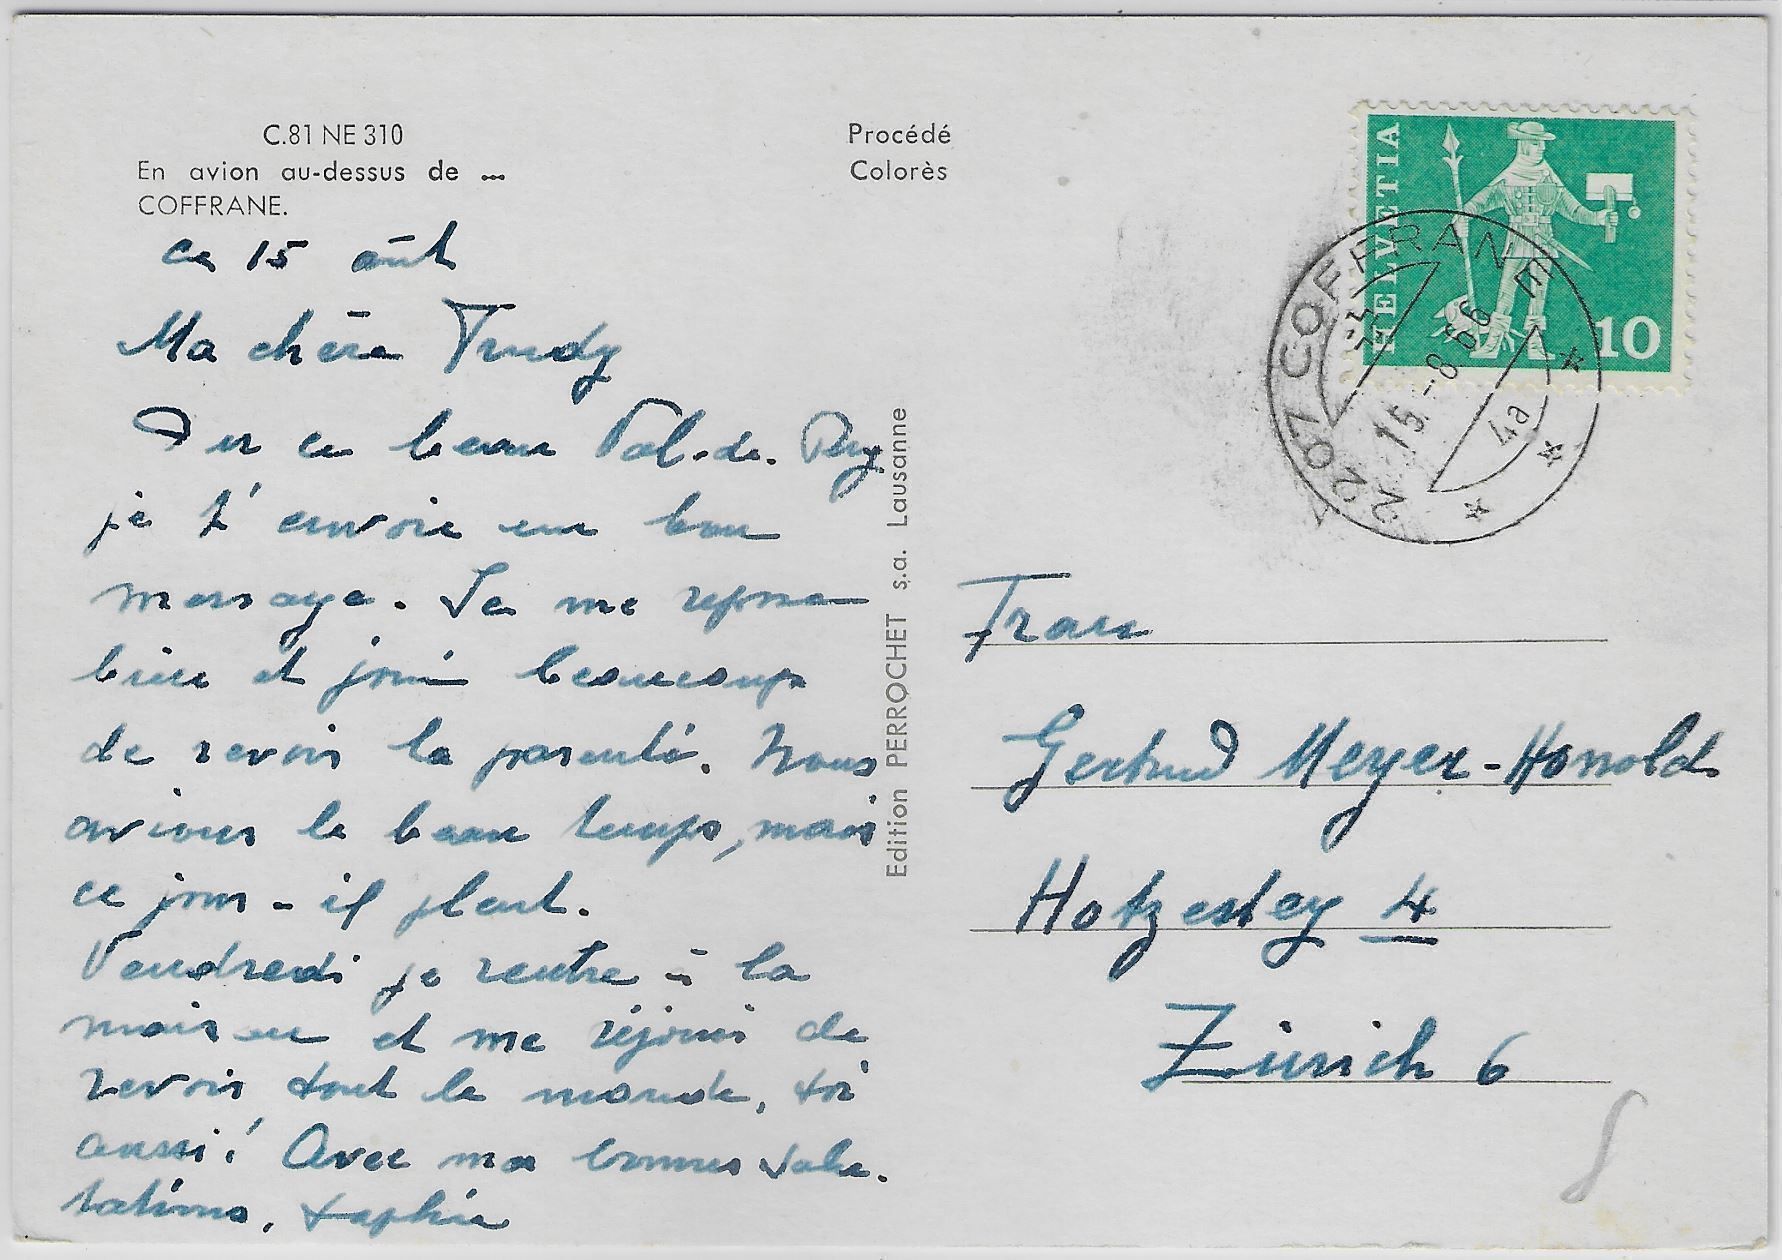 C.81 NE 310
En avion au-dessus de ...
COFFRANE.
Procédé
Colorès
ce 15 août
Ma chère Trudy
Du ce beau Val-de-Ruz
je t'envoie un bon
message. Je me repose
bien et joui beaucoup
de revoir la parenté. Nous
avions le beau temps, mais
ce jour - il pleut.
Vendredi je rentre à la
maison et me réjouis de
revoir tout le monde, toi
aussi! Avec mes bonnes salu-
tations, Sophie
Edition PERROCHET s.a. Lausanne
HELVETIA
10
2207 COFFRANE
15.-8.66
4a
Frau
Gertrud Meyer-Honold
Hotzesteg 4
Zürich 6